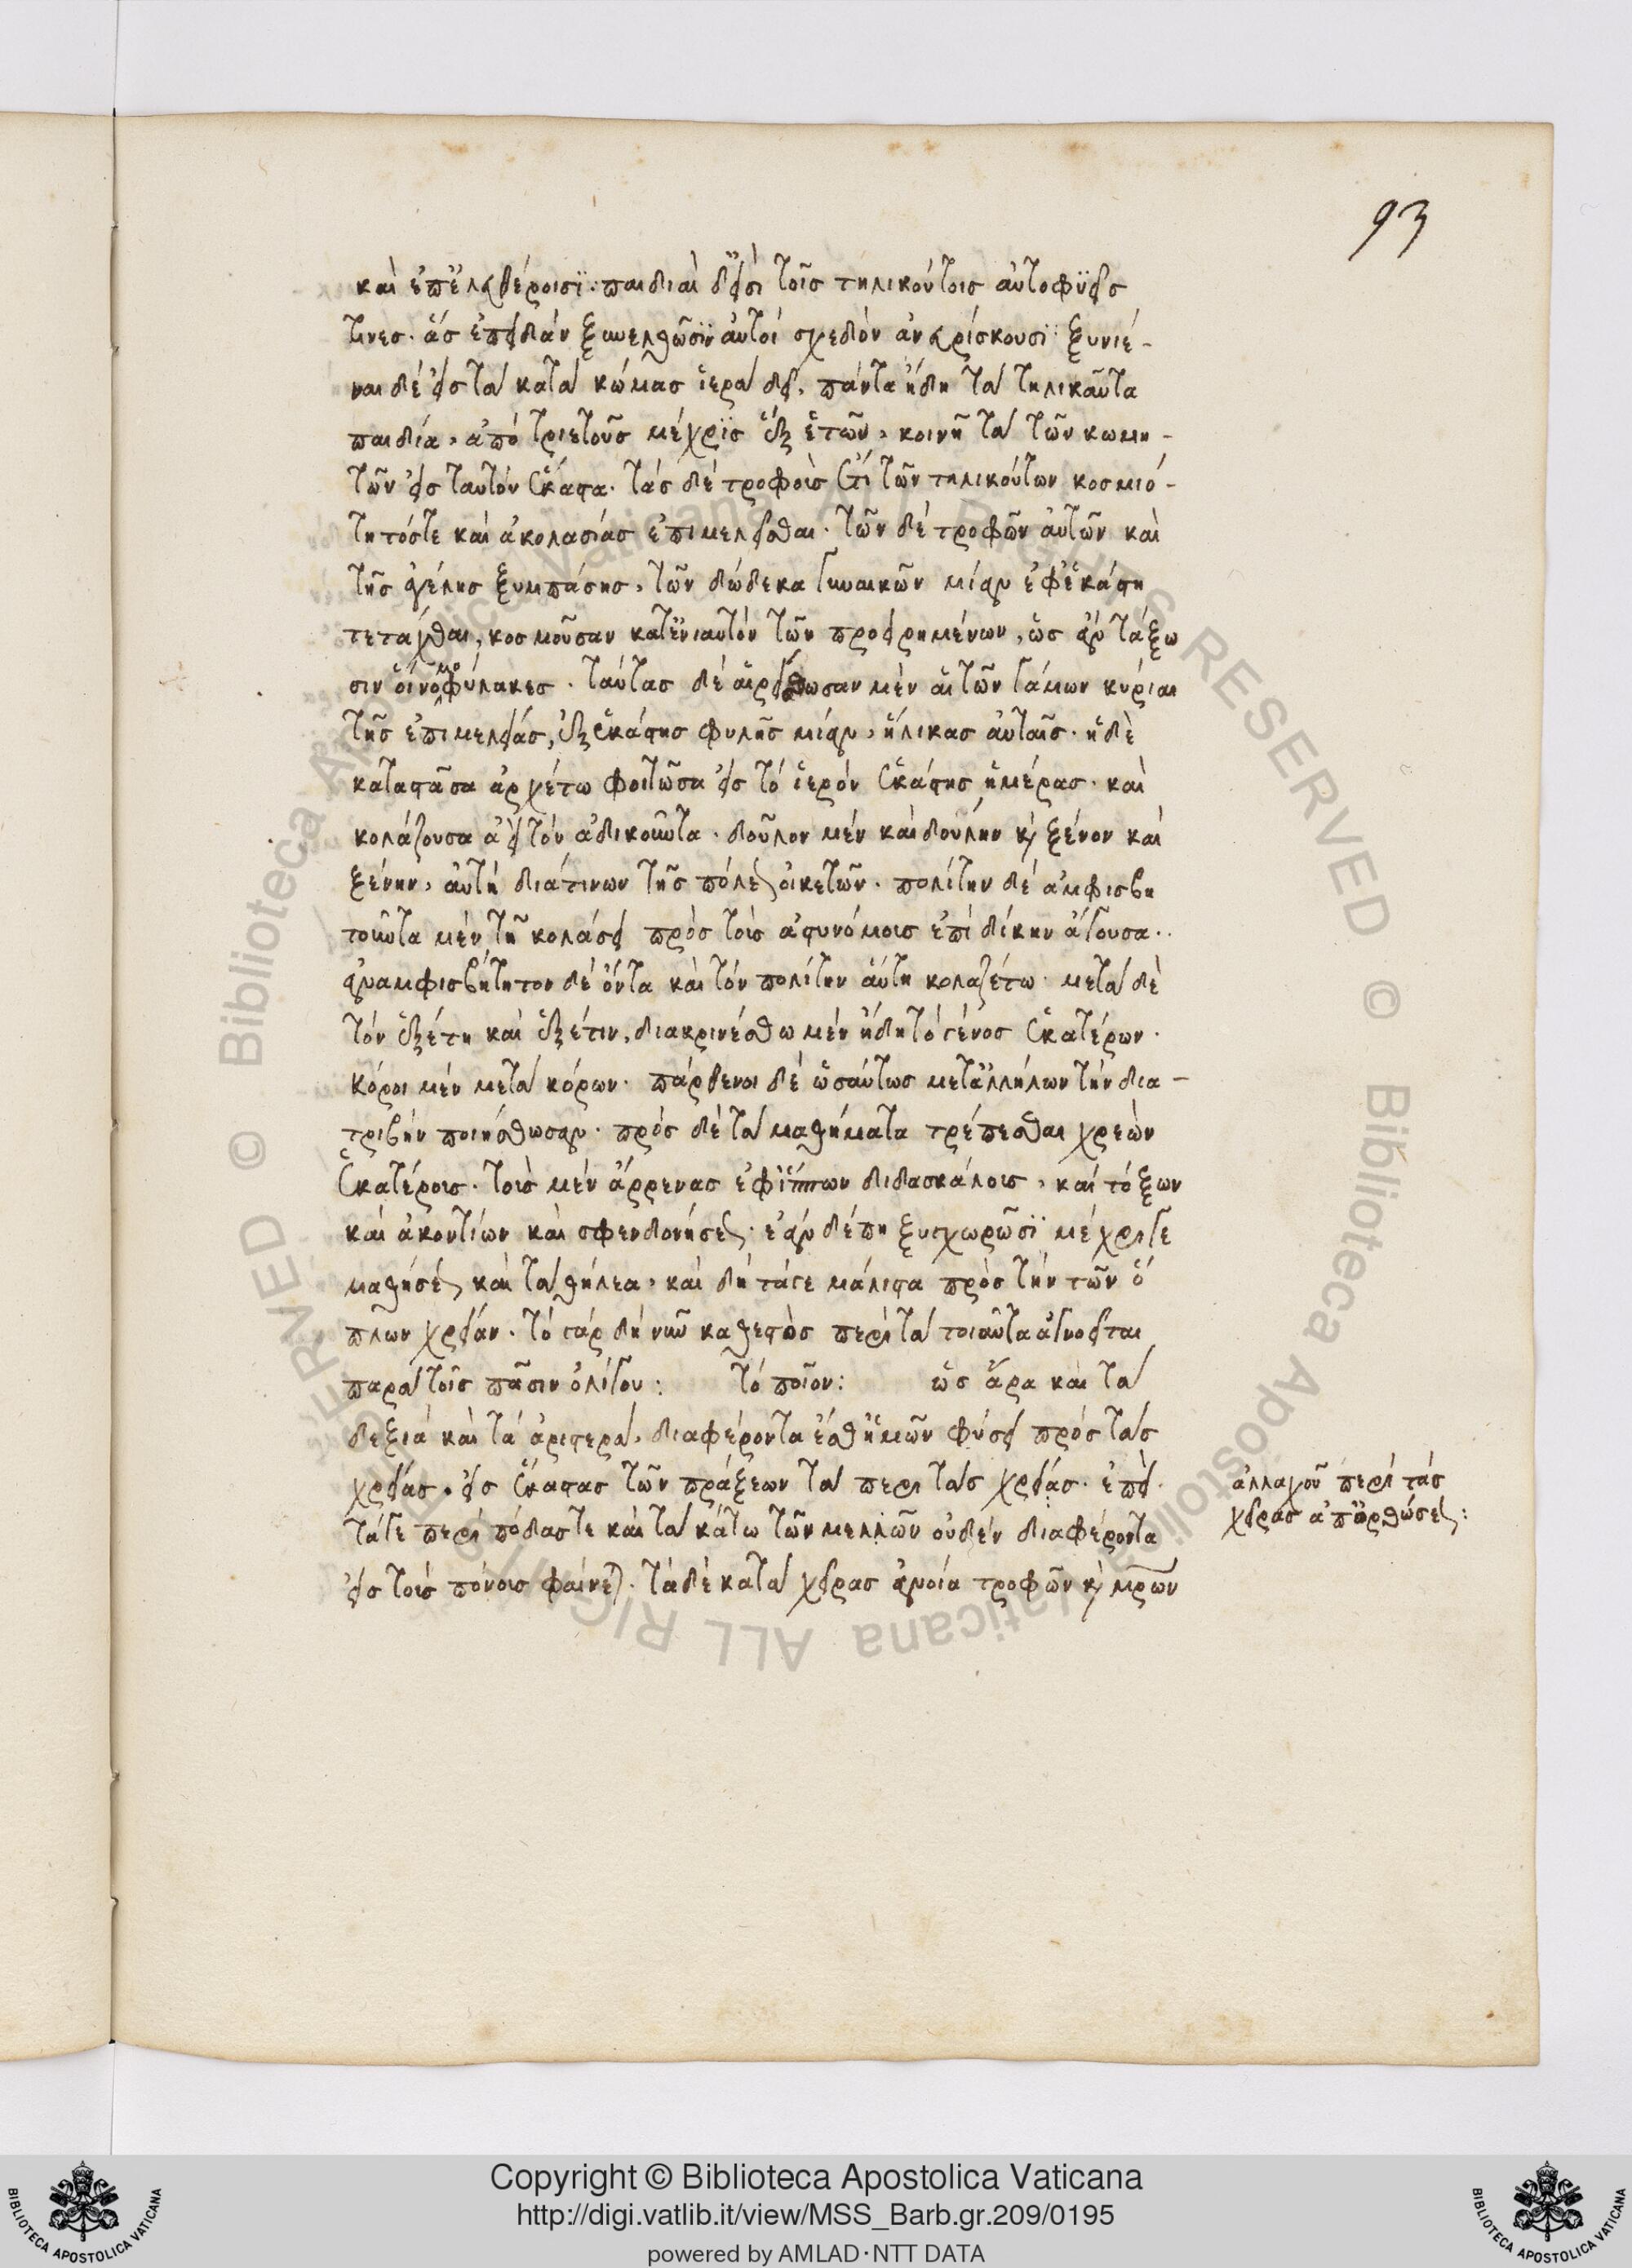 93
καὶ ἐπ' ἐλευθέροισι. παιδιαὶ δ' εἰσὶ τοῖς τηλικούτοις αὐτοφυεῖς
τινες. ἃς ἐπειδὰν ξυνέλθωσιν αὐτοὶ σχεδὸν ἀνευρίσκουσι. ξυνιέ-
ναι δὲ εἰς τὰ κατὰ κώμας ἱερὰ δεῖ. πάντα ἤδη τὰ τηλικαῦτα
παιδία, ἀπὸ τριετοῦς μέχρις ἓξ ἐτῶν, κοινῇ τὰ τῶν κωμη-
τῶν εἰς ταυτὸν ἕκαστα. τὰς δὲ τροφοὺς ἔτι τῶν τηλικούτων κοσμιό-
τητός τε καὶ ἀκολασίας ἐπιμελεῖσθαι. τῶν δὲ τροφῶν αὐτῶν καὶ
τῆς ἀγέλης ξυμπάσης, τῶν δώδεκα γυναικῶν μίαν ἐφ' ἑκάστη
τετάχθαι, κοσμοῦσαν κατ' ἐνιαυτὸν τῶν προειρημένων, ὡς ἂν τάξω
σιν οἱ νομοφύλακες. ταύτας δὲ αἱρείσθωσαν μὲν αἱ τῶν γάμων κύριαι
τῆς ἐπιμελείας, ἐξ ἑκάστης φυλῆς μίαν, ἥλικας αὐταῖς. ἡ δὲ
καταστᾶσα ἀρχέτω φοιτῶσα εἰς τὸ ἱερὸν ἑκάστης ἡμέρας. καὶ
κολάζουσα ἀεὶ τὸν ἀδικοῦντα. δοῦλον μὲν καὶ δούλην κỳ ξένον καὶ
ξένην, αὐτὴ διά τινων τῆς πόλεως οἰκετῶν. πολίτην δὲ ἀμφισβη
τοῦντα μὲν τῇ κολάσει πρὸς τοὺς ἀστυνόμους ἐπὶ δίκην ἄγουσα..
ἀναμφισβήτητον δὲ ὄντα καὶ τὸν πολίτην αὐτὴ κολαζέτω. μετὰ δὲ
τὸν ἑξέτη καὶ ἑξέτιν, διακρινέσθω μὲν ἤδη τὸ γένος ἑκατέρων.
κόροι μὲν μετὰ κόρων. πάρθενοι δὲ ὡσαύτως μετ' ἀλλήλων τὴν δια-
τριβὴν ποιήσθωσαν. πρὸς δὲ τὰ μαθήματα τρέπεσθαι χρεὼν
ἑκατέρους. τοὺς μὲν ἄρρενας ἐφ' ἵππων διδασκάλους, καὶ τόξων
καὶ ἀκοντίων καὶ σφενδονήσεως. ἐὰν δέ πη ξυγχωρῶσι μέχρι γε
μαθήσεως καὶ τὰ θήλεα, καὶ δὴ τά γε μάλιστα πρὸς τὴν τῶν ὅ
πλων χρείαν. τὸ γὰρ δὴ νῦν καθεστὼς περὶ τὰ τοιαῦτα ἀγνοεῖται
παρὰ τοῖς πᾶσιν ὀλίγου: τὸ ποῖον: ὡς ἄρα καὶ τὰ
δεξιὰ καὶ τὰ ἀριστερὰ, διαφέροντα ἐσθ' ἡμῶν φύσει πρὸς τὰς
χρείας. εἰς ἑκάστας τῶν πράξεων τὰ περὶ τὰς χρείας. ἐπεὶ.
τά γε περὶ πόδας τε καὶ τὰ κάτω τῶν μελλῶν οὐδὲν διαφέροντα
εἰς τοὺς πόνους φαίνεται. τὰ δὲ κατὰ χεῖρας ἀνοία τροφῶν κỳ μρ̅ων
ἀλλαχοῦ περὶ τὰς
χεῖρας ἀπορθώσεως:
Copyright © Biblioteca Apostolica Vaticana
http://digi.vatlib.it/view/MSS_Barb.gr.209/0195
powered by AMLAD·NTT DATA